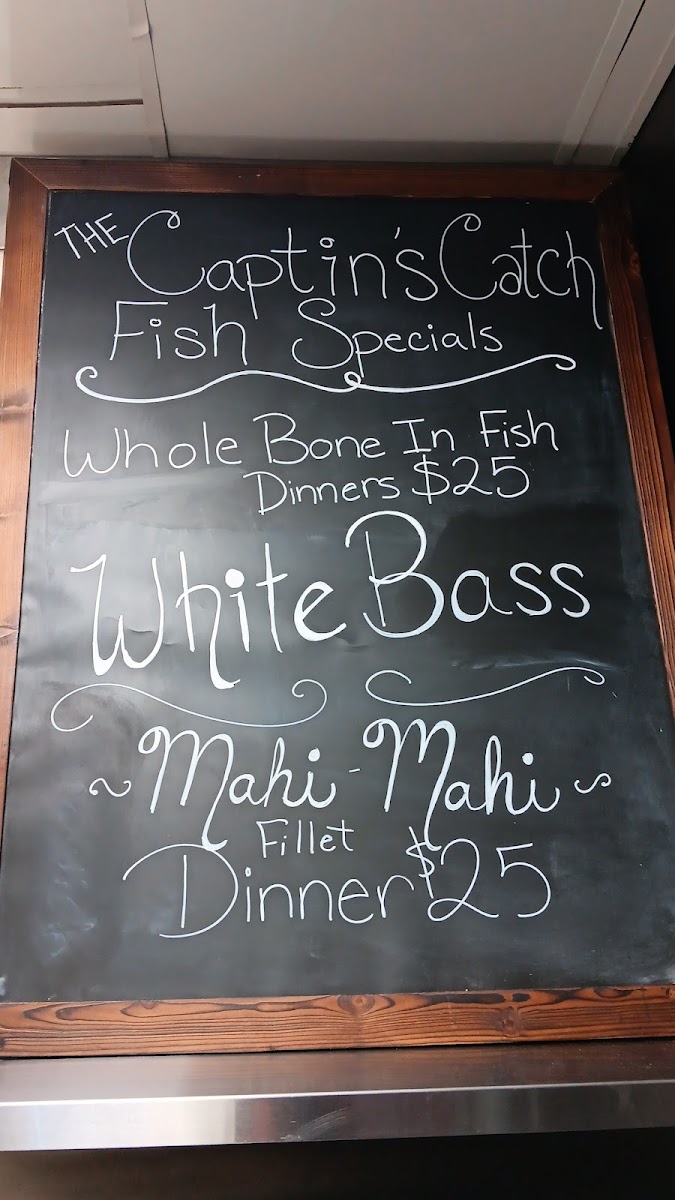 THE Captin's Catch
Fish Specials
Whole Bone In Fish
Dinners $25
White Bass
~ Mahi-Mahi ~
Fillet
Dinner $25